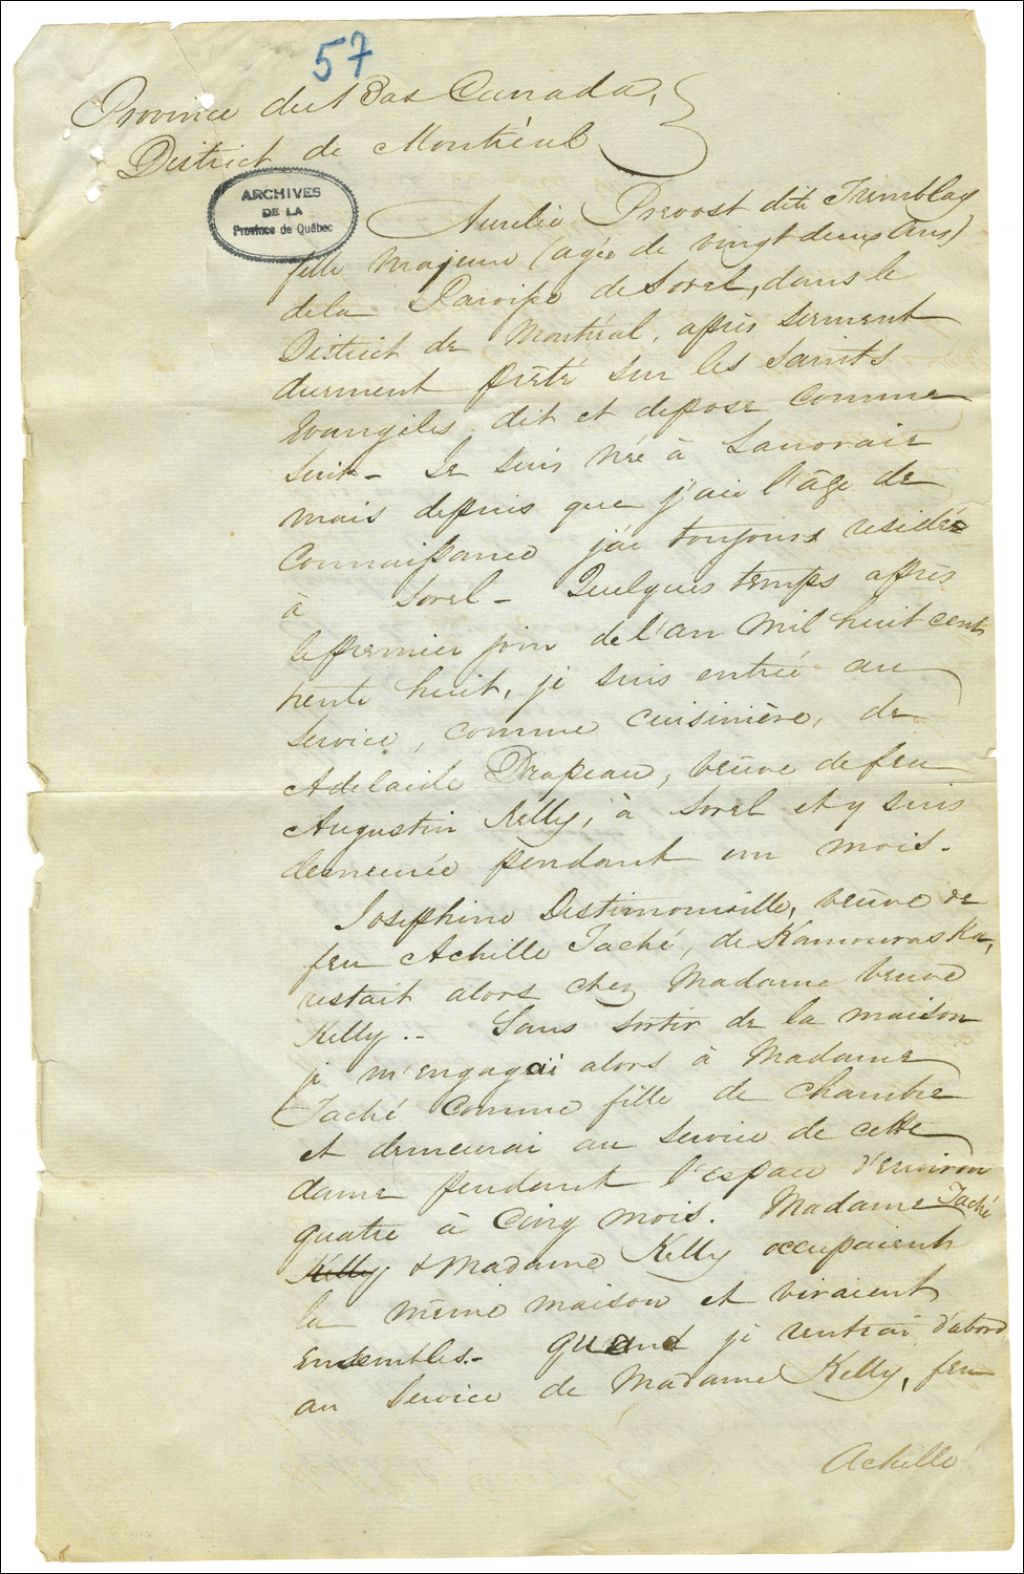 57
Province du Bas Canada,
District de Montréal
ARCHIVES
DE LA
Province de Québec
Aurélie Prevost dite Tremblay
fille majeure (agée de vingt deux Ans)
dela Paroisse de Sorel, dans le
District de Montréal, après serment
duement prêté sur les Saints
Evangiles, dit et depose comme
suit - Je suis née à Lanoraie
mais depuis que j'aie l'âge de
Connaissance j'ai toujours residée
à Sorel - Quelques temps après
le premier juin de l'an Mil huit cent
trente huit, je suis entrée au
Service, comme cuisinière, de
Adelaide Drapeau, veuve de feu
Augustin Kelly, à Sorel et y suis
demeurée pendant un mois.
Josephine Destimonville, veuve de
feu Achille Taché, de Kamouraska,
restait alors chez Madame veuve
Kelly.. Sans sortir de la maison
je m'engagai alors à Madame
Taché comme fille de chambre
et demeurai au service de cette
dame pendant l'espace d'environ
quatre à Cinq mois. Madame Taché
Kelly & Madame Kelly occupaient
la même maison et vivaient
ensembles.- quand je rentrai d'abord
au Service de Madame Kelly, feu
Achille